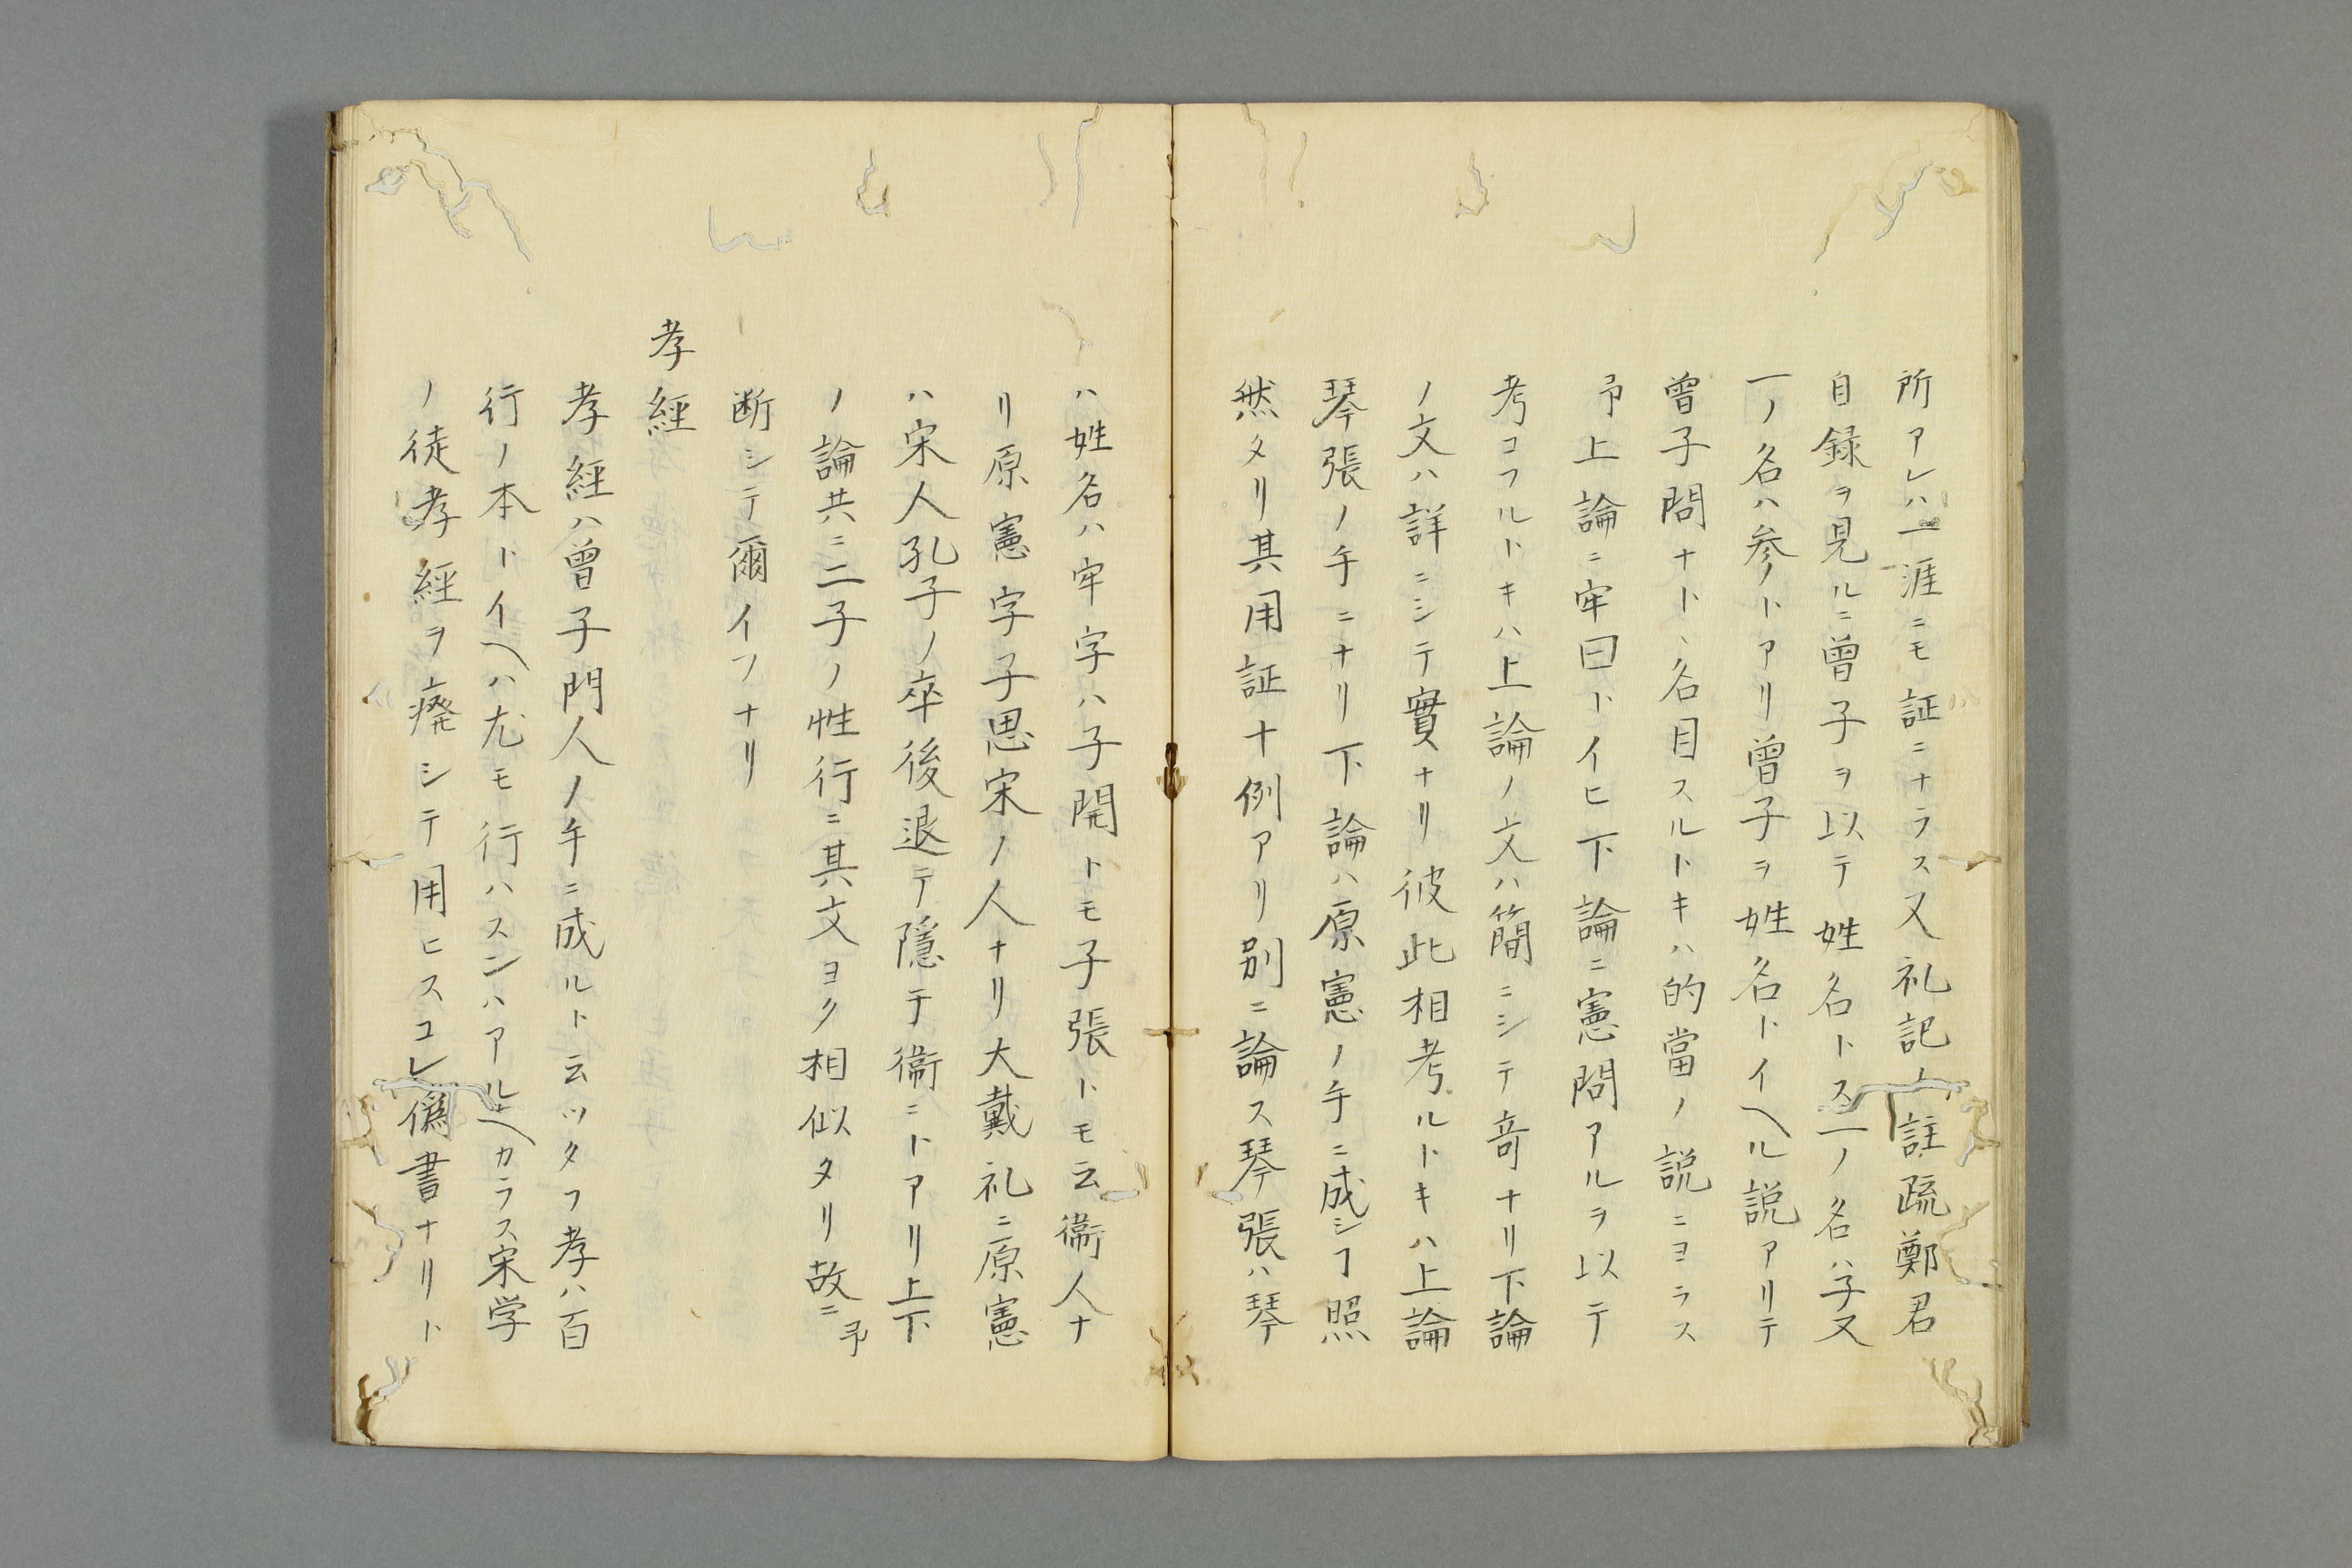 所アレハ一涯ニモ証ニナラス又礼記ノ註疏鄭君
自録ヲ見ルニ曾子ヲ以テ姓名トス一ノ名ハ字又
一ノ名ハ参トアリ曾子ヲ姓名トイヘル説アリテ
曾子問ナトヽ名目スルトキハ的當ノ説ニヨラス
予上論ニ牢曰トイヒ下論ニ憲問アルヲ以テ
考コフルトキハ上論ノ文ハ簡ニシテ竒ナリ下論
ノ文ハ詳ニシテ實ナリ彼此相考ルトキハ上論
琴張ノ手ニナリ下論ハ原憲ノ手ニ成シヿ照
然タリ其用証十例アリ別ニ論ス琴張ハ琴
ハ姓名ハ牢字ハ子開トモ子張トモ云衞人ナ
リ原憲字子思宋ノ人ナリ大戴礼ニ原憲
ハ宋人孔子ノ卒後退テ隱テ衞ニトアリ上下
ノ論共ニ二子ノ性行ニ其文ヨク相似タリ故ニ予
断シテ爾イフナリ
孝經
孝經ハ曾子門人ノ手ニ成ルト云ツタフ孝ハ百
行ノ本トイヘハ尤モ行ハスンハアルヘカラス宋学
ノ徒孝經ヲ癈シテ用ヒスコレ僞書ナリト